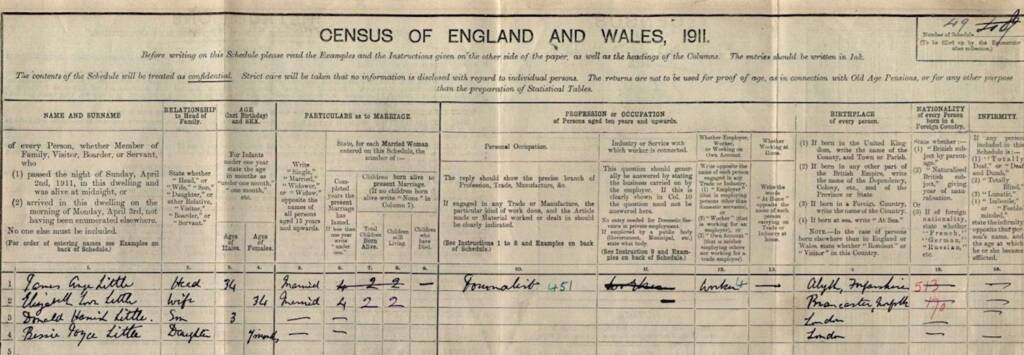 CENSUS OF ENGLAND AND WALES, 1911.
Number of Schedule
(To be filled up by the Enumerator
after collection.)
49
Before writing on this Schedule please read the Examples and the Instructions given on the other side of the paper, as well as the headings of the Columns. The entries should be written in Ink.
The contents of the Schedule will be treated as confidential. Strict care will be taken that no information is disclosed with regard to individual persons. The returns are not to be used for proof of age, as in connection with Old Age Pensions, or for any other purpose
than the preparation of Statistical Tables.
NAME AND SURNAME
of every Person, whether Member of
Family, Visitor, Boarder, or Servant,
who
(1) passed the night of Sunday, April
2nd, 1911, in this dwelling and
was alive at midnight, or
(2) arrived in this dwelling on the
morning of Monday, April 3rd, not
having been enumerated elsewhere.
No one else must be included.
(For order of entering names see Examples on
back of Schedule.)
RELATIONSHIP
to Head of
Family.
State whether
"Head," or
"Wife," "Son,"
"Daughter," or
other Relative,
"Visitor,"
"Boarder," or
"Servant."
AGE
(last Birthday)
and SEX.
For Infants
under one year
state the age
in months as
"under one
month," "one
month," etc.
Ages
of
Males.
Ages
of
Females.
PARTICULARS as to MARRIAGE.
Write
"Single,"
"Married,"
"Widower,"
or "Widow,"
opposite the
names of
all persons
aged 15 years
and upwards.
State, for each Married Woman
entered on this Schedule, the
number of :—
Completed
years the
present
Marriage
has
lasted.
If less than
one year
write
"under one."
Children born alive to
present Marriage.
(If no children born
alive write "None" in
Column 7).
Total
Children
Born
Alive.
Children
still
Living.
Children
who
have
Died.
PROFESSION or OCCUPATION
of Persons aged ten years and upwards.
Personal Occupation.
The reply should show the precise branch of
Profession, Trade, Manufacture, &c.
If engaged in any Trade or Manufacture, the
particular kind of work done, and the Article
made or Material worked or dealt in should
be clearly indicated.
(See Instructions 1 to 8 and Examples on
back of Schedule.)
Industry or Service with
which worker is connected.
This question should generally
be answered by stating
the business carried on
by the employer. If this is
clearly shown in Col. 10
the question need not be
answered here.
No entry needed for Domestic Servants
in private employment.
If employed by a public body
(Government, Municipal, etc.)
state what body.
(See Instruction 9 and Examples
on back of Schedule.)
Whether Employer,
Worker, or
Working on Own
Account.
Write opposite the
name of each person
engaged in any
Trade or Industry,
(1) "Employer"
(that is employing
persons other than
domestic servants),
or (2) "Worker" (that
is working for an
employer), or
(3) "Own Account"
(that is neither
employing others
nor working for a
trade employer).
Whether
Working at
Home.
Write the
words
"At Home"
opposite the
name of each
person
carrying on
Trade or
Industry at
home.
BIRTHPLACE
of every person.
(1) If born in the United Kingdom,
write the name of the
County, and Town or Parish.
(2) If born in any other part of
the British Empire, write
the name of the Dependency,
Colony, etc., and of the
Province or State.
(3) If born in a Foreign Country,
write the name of the Country.
(4) If born at sea, write "At Sea."
NOTE.—In the case of persons
born elsewhere than in England or
Wales, state whether "Resident" or
"Visitor" in this Country.
NATIONALITY
of every Person
born in a
Foreign Country.
State whether :—
(1) "British
subject by
parentage."
(2) "Naturalised
British subject,"
giving
year of
naturalisation.
Or
(3) If of foreign
nationality,
state whether
"French,"
"German,"
"Russian,"
etc.
INFIRMITY.
1.
2.
3.
4.
5.
6.
7.
8.
9.
10.
11.
12.
13.
1 James Little Head 34 Married 4 2 2 — Journalist 451 Worker Alyth, 543
2 Elizabeth Little Wife 34 Married 4 2 2 Brancaster, Norfolk
3 Donald Little. Son 3 — — London —
4 Bessie Joyce Little Daughter — — London —
5